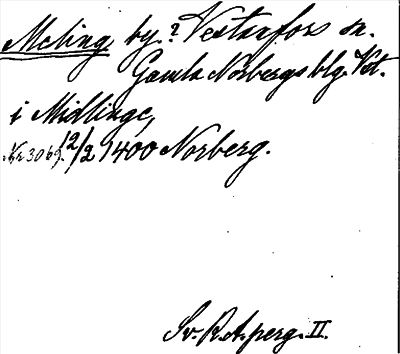 Meling by? Vestanfors sn.
Gamla Norbergs blg. Vstm.
i Midlinge,
Nr 3069. 12/2 1400 Norberg.
Sv. R.A. perg. II.